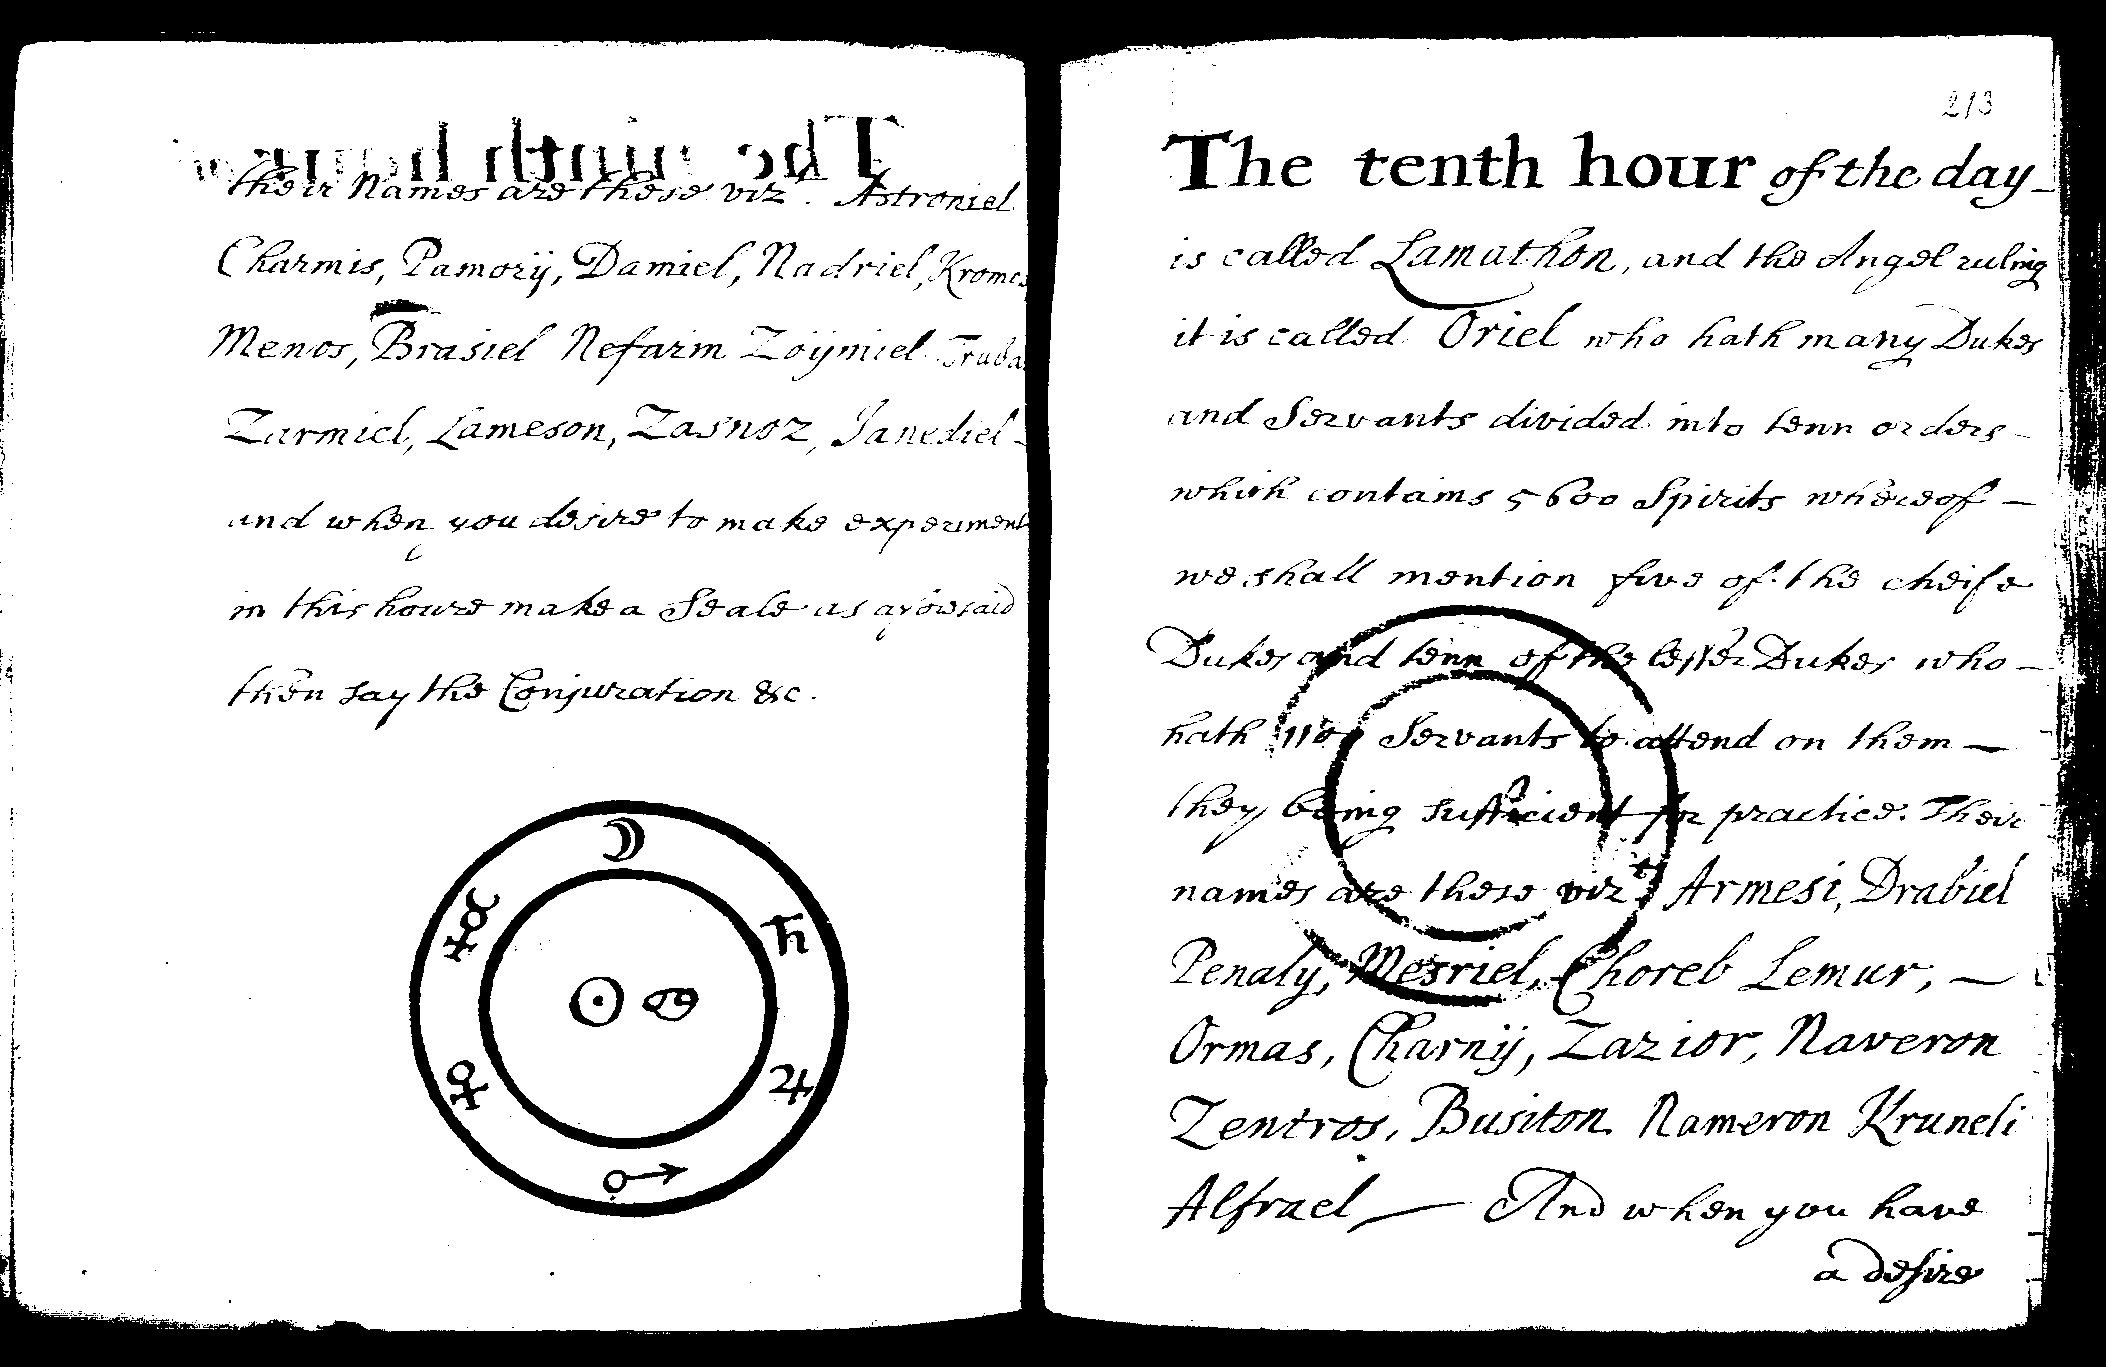 their Names are these viz^t. Astroniel
Charmis, Pamorij, Damiel, Nadriel, Kromes
Menos, Brasiel Nefarim Zoijmiel Truba
Zarmiel, Lameson, Zasnoz, Janediel -
and when you desire to make experiment
in this houre make a Seale as aforesaid
then say the Conjuration &c.
213
The tenth hour of the day_
is called Lamathon, and the Angel ruling
it is called Oriel who hath many Dukes
and Servants divided into tenn orders -
which contains 5600 Spirits whereof -
we shall mention five of the cheife
Dukes and tenn of the lesser Dukes who -
hath 1100 Servants to attend on them -
they being sufficient for practice. Their
names are these viz^t Armesi, Drabiel
Penaly, Mesriel, Choreb Lemur, -
Ormas, Charnij, Zazior, Naveron
Zentros, Busiton Nameron Kruneli
Alfrael — And when you have
a desire